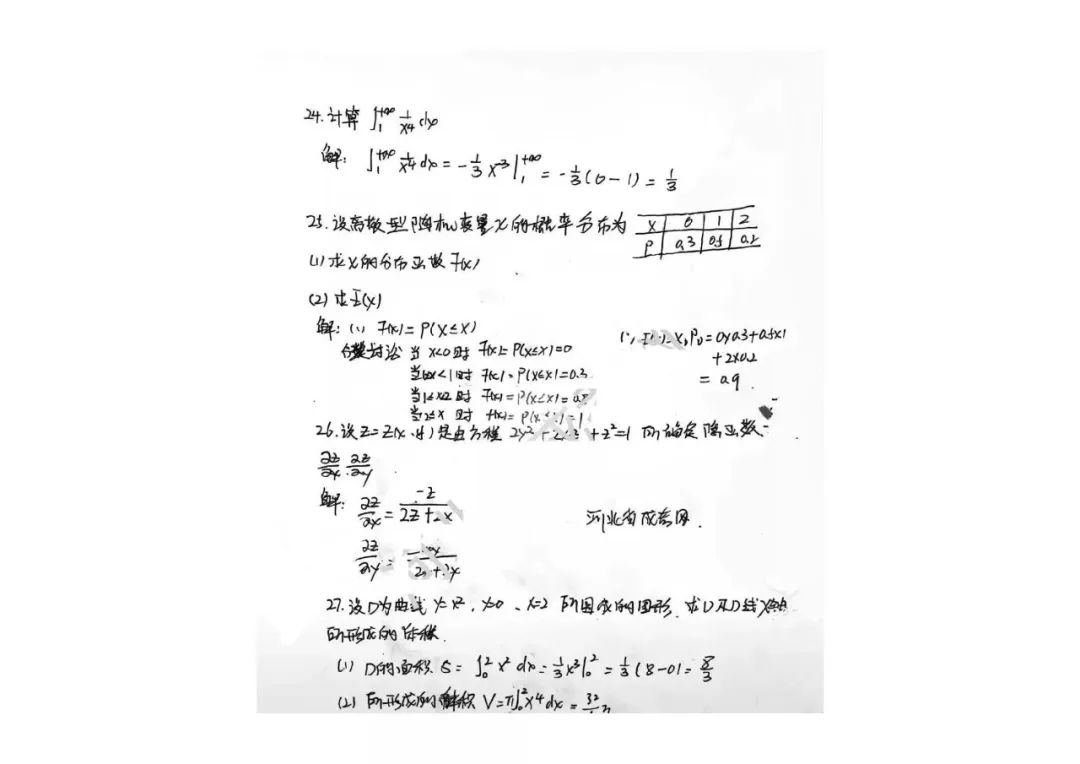 24.计算 ∫₁^{+∞} 1/x⁴ dx
解: ∫₁^{+∞} 1/x⁴ dx = -1/3 x⁻³ |₁^{+∞} = -1/3(0-1) = 1/3
25.设离散型随机变量X的概率分布为 X 0 1 2
P 0.3 0.5 0.2
(1)求X的分布函数F(x)
(2)求E(X)
解:(1) F(x)=P(X≤x)
分类讨论 当 x<0时 F(x)=P(X≤x)=0
当0≤x<1时 F(x)=P(X≤x)=0.3
当1≤x<2时 F(x)=P(X≤x)=0.8
当2≤x时 F(x)=P(X≤x)=1
=0×0.3+0.5×1
+2×0.2
=0.9.
26.设Z=Z(x,y)是由方程 2y²+ +z²=1 所确定隐函数
∂z/∂x ∂z/∂y
解: ∂z/∂x = -z/(2z+2x)
∂z/∂y =
河北省成考网.
27.设D为曲线y=x², y=0, x=2 所围成的图形,求
所形成的体积.
(1) D的面积 S= ∫₀² x² dx = 1/3 x³|₀² = 1/3(8-0) = 8/3
(2) 所形成的体积 V=π∫₀² x⁴ dx = 32